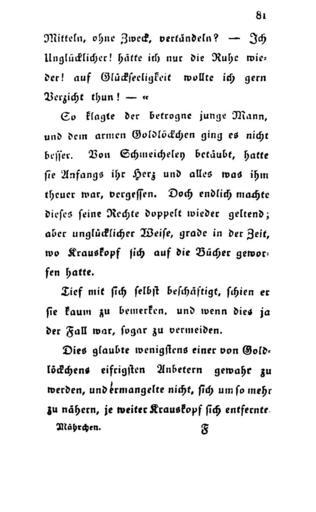 81
Mitteln, ohne Zweck, vertändeln? — Ich
Unglücklicher! hätte ich nur die Ruhe wie-
der! auf Glückseeligkeit wollte ich gern
Verzicht thun! — «
So klagte der betrogne junge Mann,
und dem armen Goldlöckchen ging es nicht
besser. Von Schmeicheley betäubt, hatte
sie Anfangs ihr Herz und alles was ihm
theuer war, vergessen. Doch endlich machte
dieses seine Rechte doppelt wieder geltend;
aber unglücklicher Weise, grade in der Zeit,
wo Krauskopf sich auf die Bücher gewor-
fen hatte.
Tief mit sich selbst beschäftigt, schien er
sie kaum zu bemerken, und wenn dies ja
der Fall war, sogar zu vermeiden.
Dies glaubte wenigstens einer von Gold-
löckchens eifrigsten Anbetern gewahr zu
werden, und ermangelte nicht, sich um so mehr
zu nähern, je weiter Krauskopf sich entfernte.
Mährchen. F